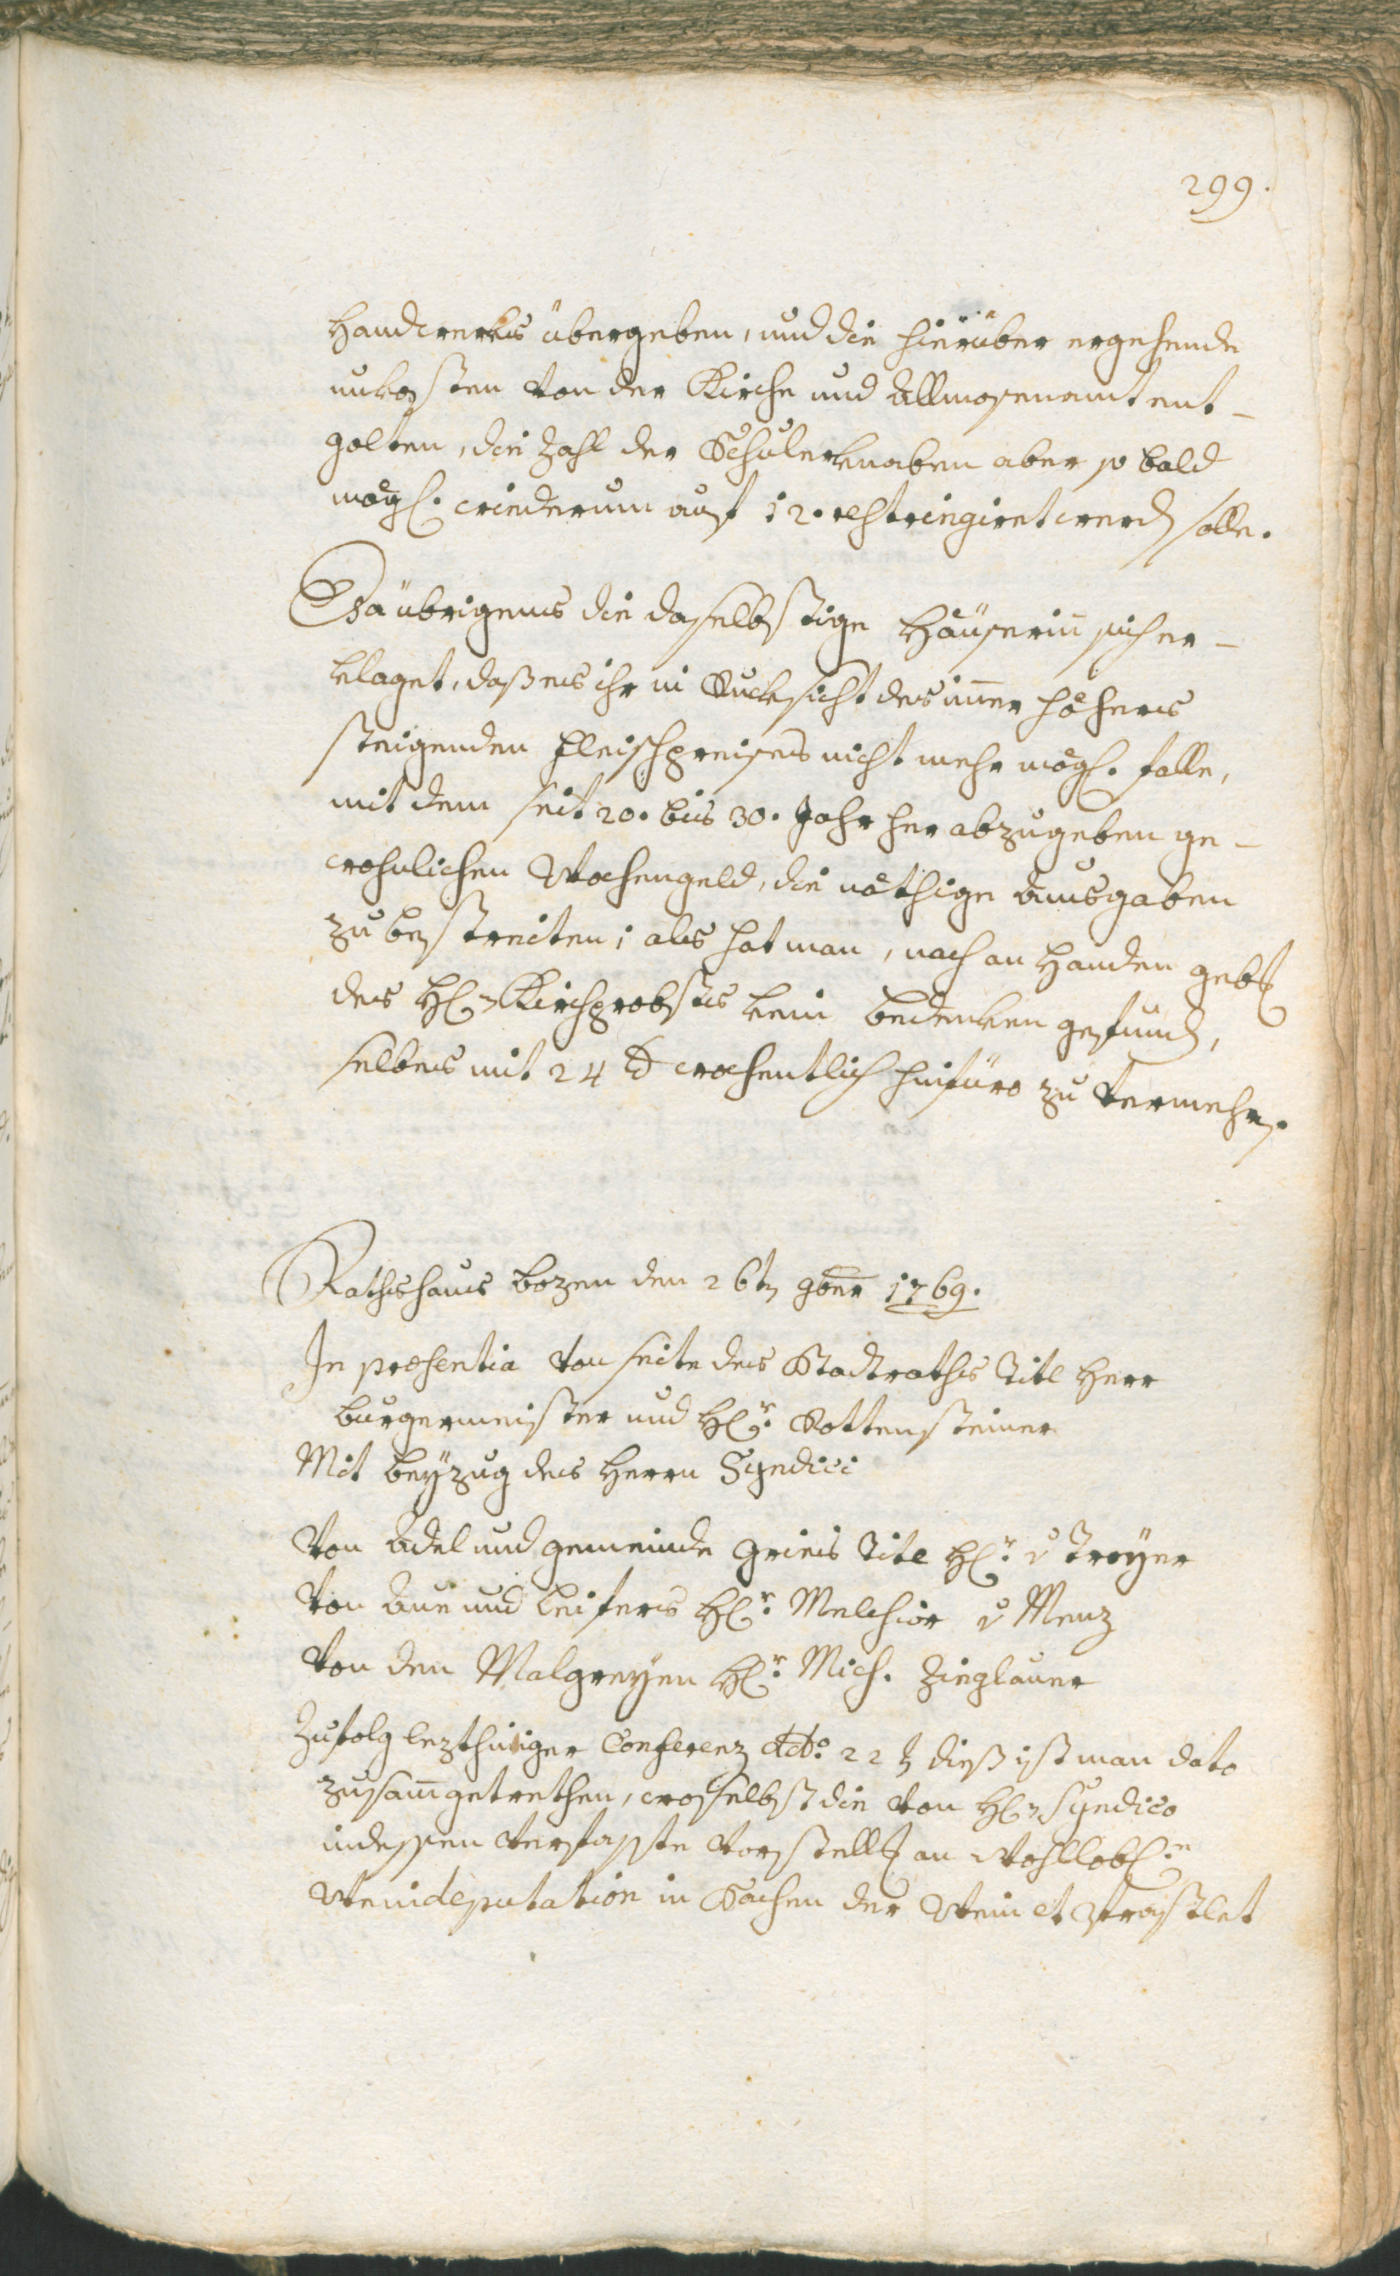 299.
Handtwerks übergeben, und die hierüber ergehende
unkosten von der Kirche und Allmosenamt ent-
golten, die Zahl der Schulerknaben aber so bald
mögl. widerum auf 12. restringiret werdn solle.
Da übrigens die daselbstige Häuserin sich er-
klaget, daß es ihr in Rucksicht des imer höhers
steigenden Fleischpreises nicht mehr mögl. falle,
mit dem seit 20. bis 30. Jahr her abzugeben ge-
wohnlichen Wochengeld, die nöthige Ausgaben
zu bestreiten; als hat man, nach an Handen gebg
des Hl. Kirchprobsts kein bedenken gefundn,
selbes mit 24 x wochentlich hinfüro zu vermehrn.
Rathshaus bozen den 26tn 9ber 1769.
In præsentia von seite des Stadtraths Titl Herr
burgermeister und Hlr. Rottensteiner
Mit beyzug des Herrn Syndici
Von Adel und gemeinde Gries Titl Hlr. v Troyer
Von Aue und Leifers Hlr. Melchior v Menz
Von den Malgreyen Hlr. Mich. Zieglauer
Zufolg lezthiniger Conferenz ddo. 22 tn dieß ist man dato
zusamgetretten, woselbst die von Hl. Syndico
indessen verfasste vorstellg an Wohllobln.
Weindeputation in Sachen der Wein et Prastlet